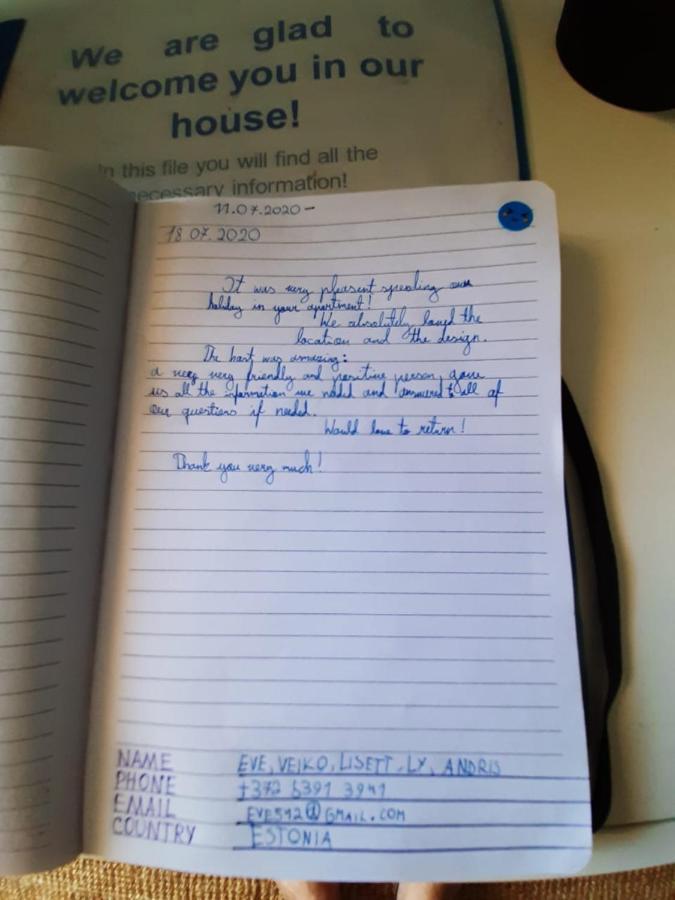 We are glad to
welcome you in our
house!
In this file you will find all the
necessary information!
11.07.2020 -
18 07. 2020
It was very pleasent spending our
holiday in your apartment!
We absolutely loved the
location and the design.
The host was amazing:
a very very friendly and positive person, gave
us all the information we needed and answered to all of
our questions if needed.
Would love to return!
Thank you very much!
NAME EVE, VEIKO, LISETT, LY, ANDRIS
PHONE +372 5391 3941
EMAIL EVE592@GMAIL.COM
COUNTRY ESTONIA